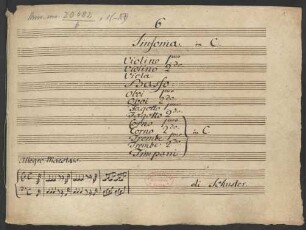 6
Sinfonia in C
Violino 1mo
Violino 2do.
Viola
Basso
Oboi 1mo
Oboi 2do.
Fagotto 1mo
Fagotto 2do.
Corno 1mo
Corno 2do. in C
Trombe 1mo
Trombe 2do.
Timpani
Allegro Maestoso
di Schuster